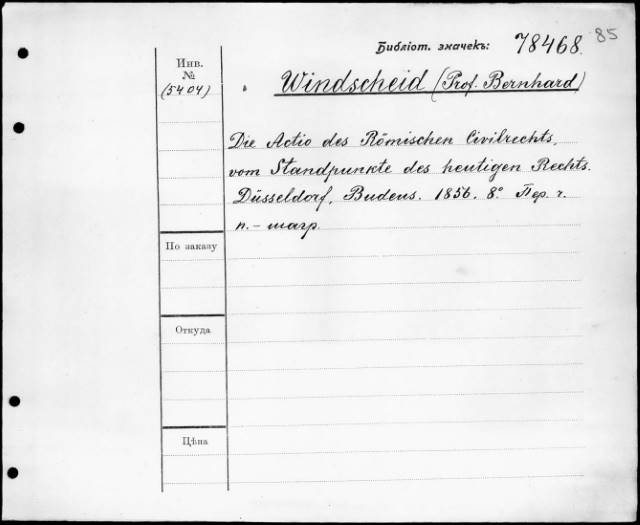 Библіот. значекъ: 78468. 85
Инв.
№
(5404)
Windscheid (Prof. Bernhard)
Die Actio des Römischen Civilrechts,
vom Standpunkte des heutigen Rechts.
Düsseldorf, Budeus. 1856. 8º. Пер. г.
п. – шагр.
По заказу
Откуда
Цѣна